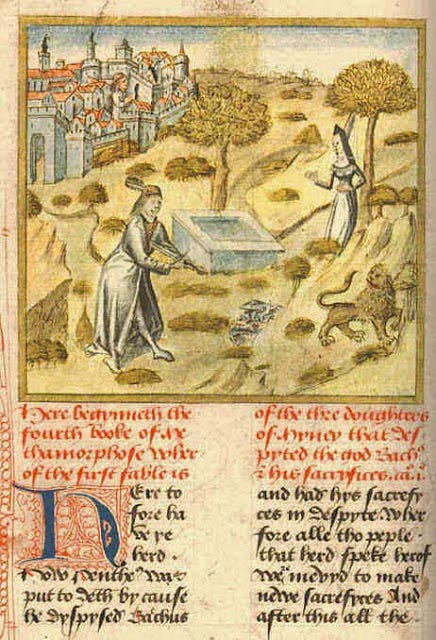 Here begynneth the
fourth booke of Me
thamorphose wher
of the first fable is
of the thre doughtres
of Myney that des
pyted the god Bach9
& his sacrefices. ca. i.
Here to
fore ha
ve ye
herd .
How Penthe9 was
put to deth by cause
he dyspysed Bachus
and had hys sacrefy
ces in despyte wher
fore alle tho peple
that herd speke herof
were mevyd to make
newe sacrefyces And
after this all the